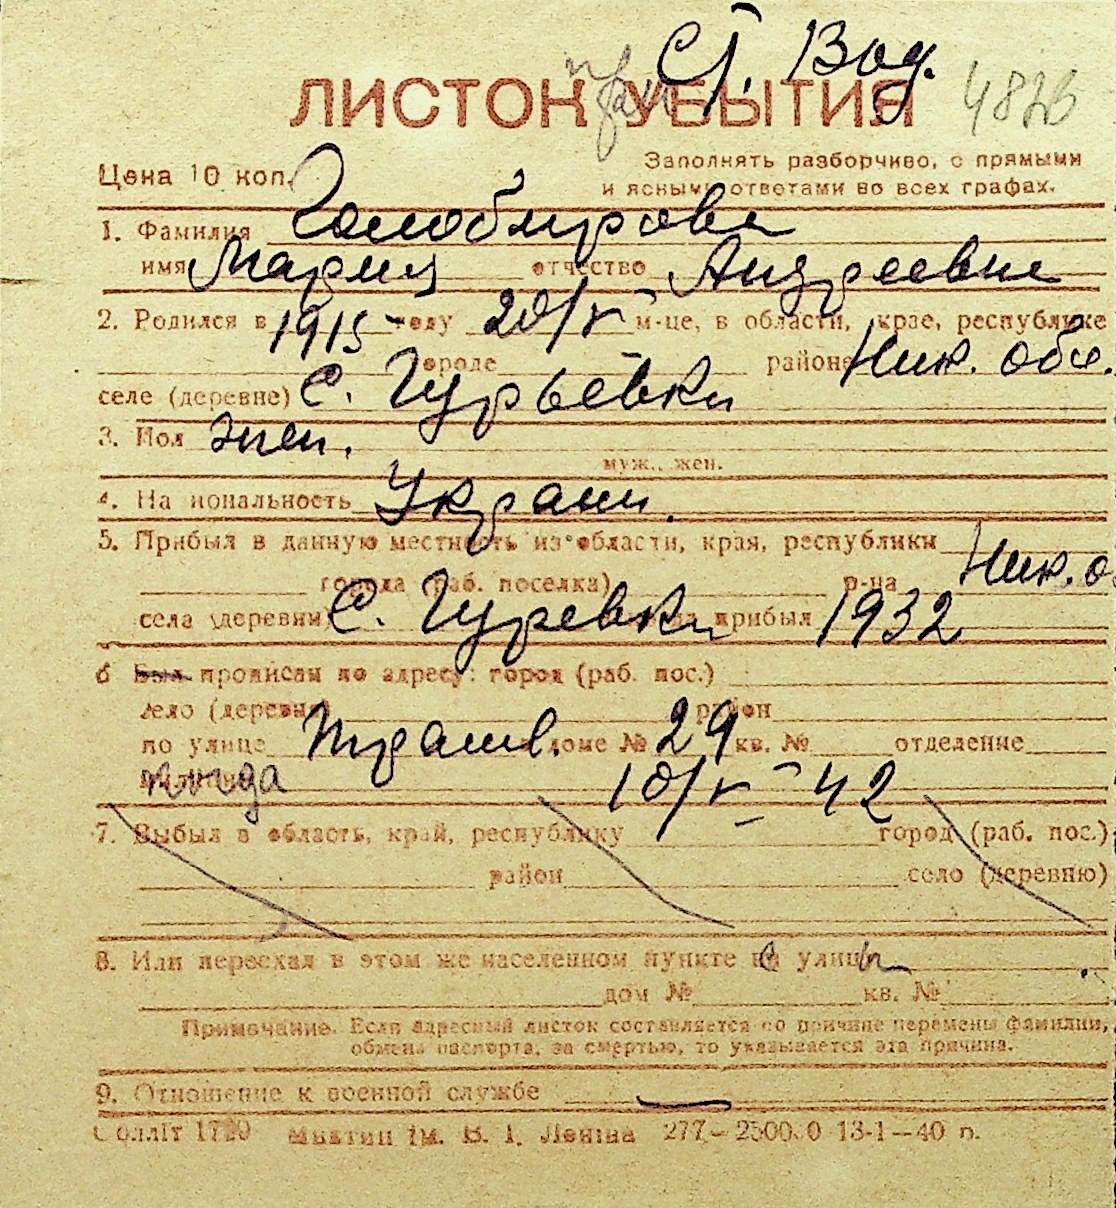 Ст. Вод.
ЛИСТОК УБЫТИЯ 482
Цена 10 коп. Заполнять разборчиво, с прямыми
и ясными ответами во всех графах.
1. Фамилия
имя Мария отчество Андреевна
2. Родился в 1915 году 20/V м-це, в области, крае, республике
городе районе Ник. обл.
селе (деревне) с. Гурьевка
3. Пол жен.
муж., жен.
4. На иональность Украин.
5. Прибыл в данную местность из области, края, республики
города (раб. поселка) р-на Ник. о
села (деревни) с. Гуревка прибыл 1932
6 Был прописан по адресу: город (раб. пос.)
село (деревня) район
по улице доме № 29 кв. № отделение
когда 10/V – 42
7. Выбыл в область, край, республику город (раб. пос.)
район село (деревню)
8. Или переехал в этом же населенном пункте улиц
дом № кв. №
Примечание. Если адресный листок составляется по причине перемены фамилии,
обмена паспорта, за смертью, то указывается эта причина.
9. Отношение к военной службе —
Облліт 1720 ім. В. І. Леніна 277— 13-1—40 п.